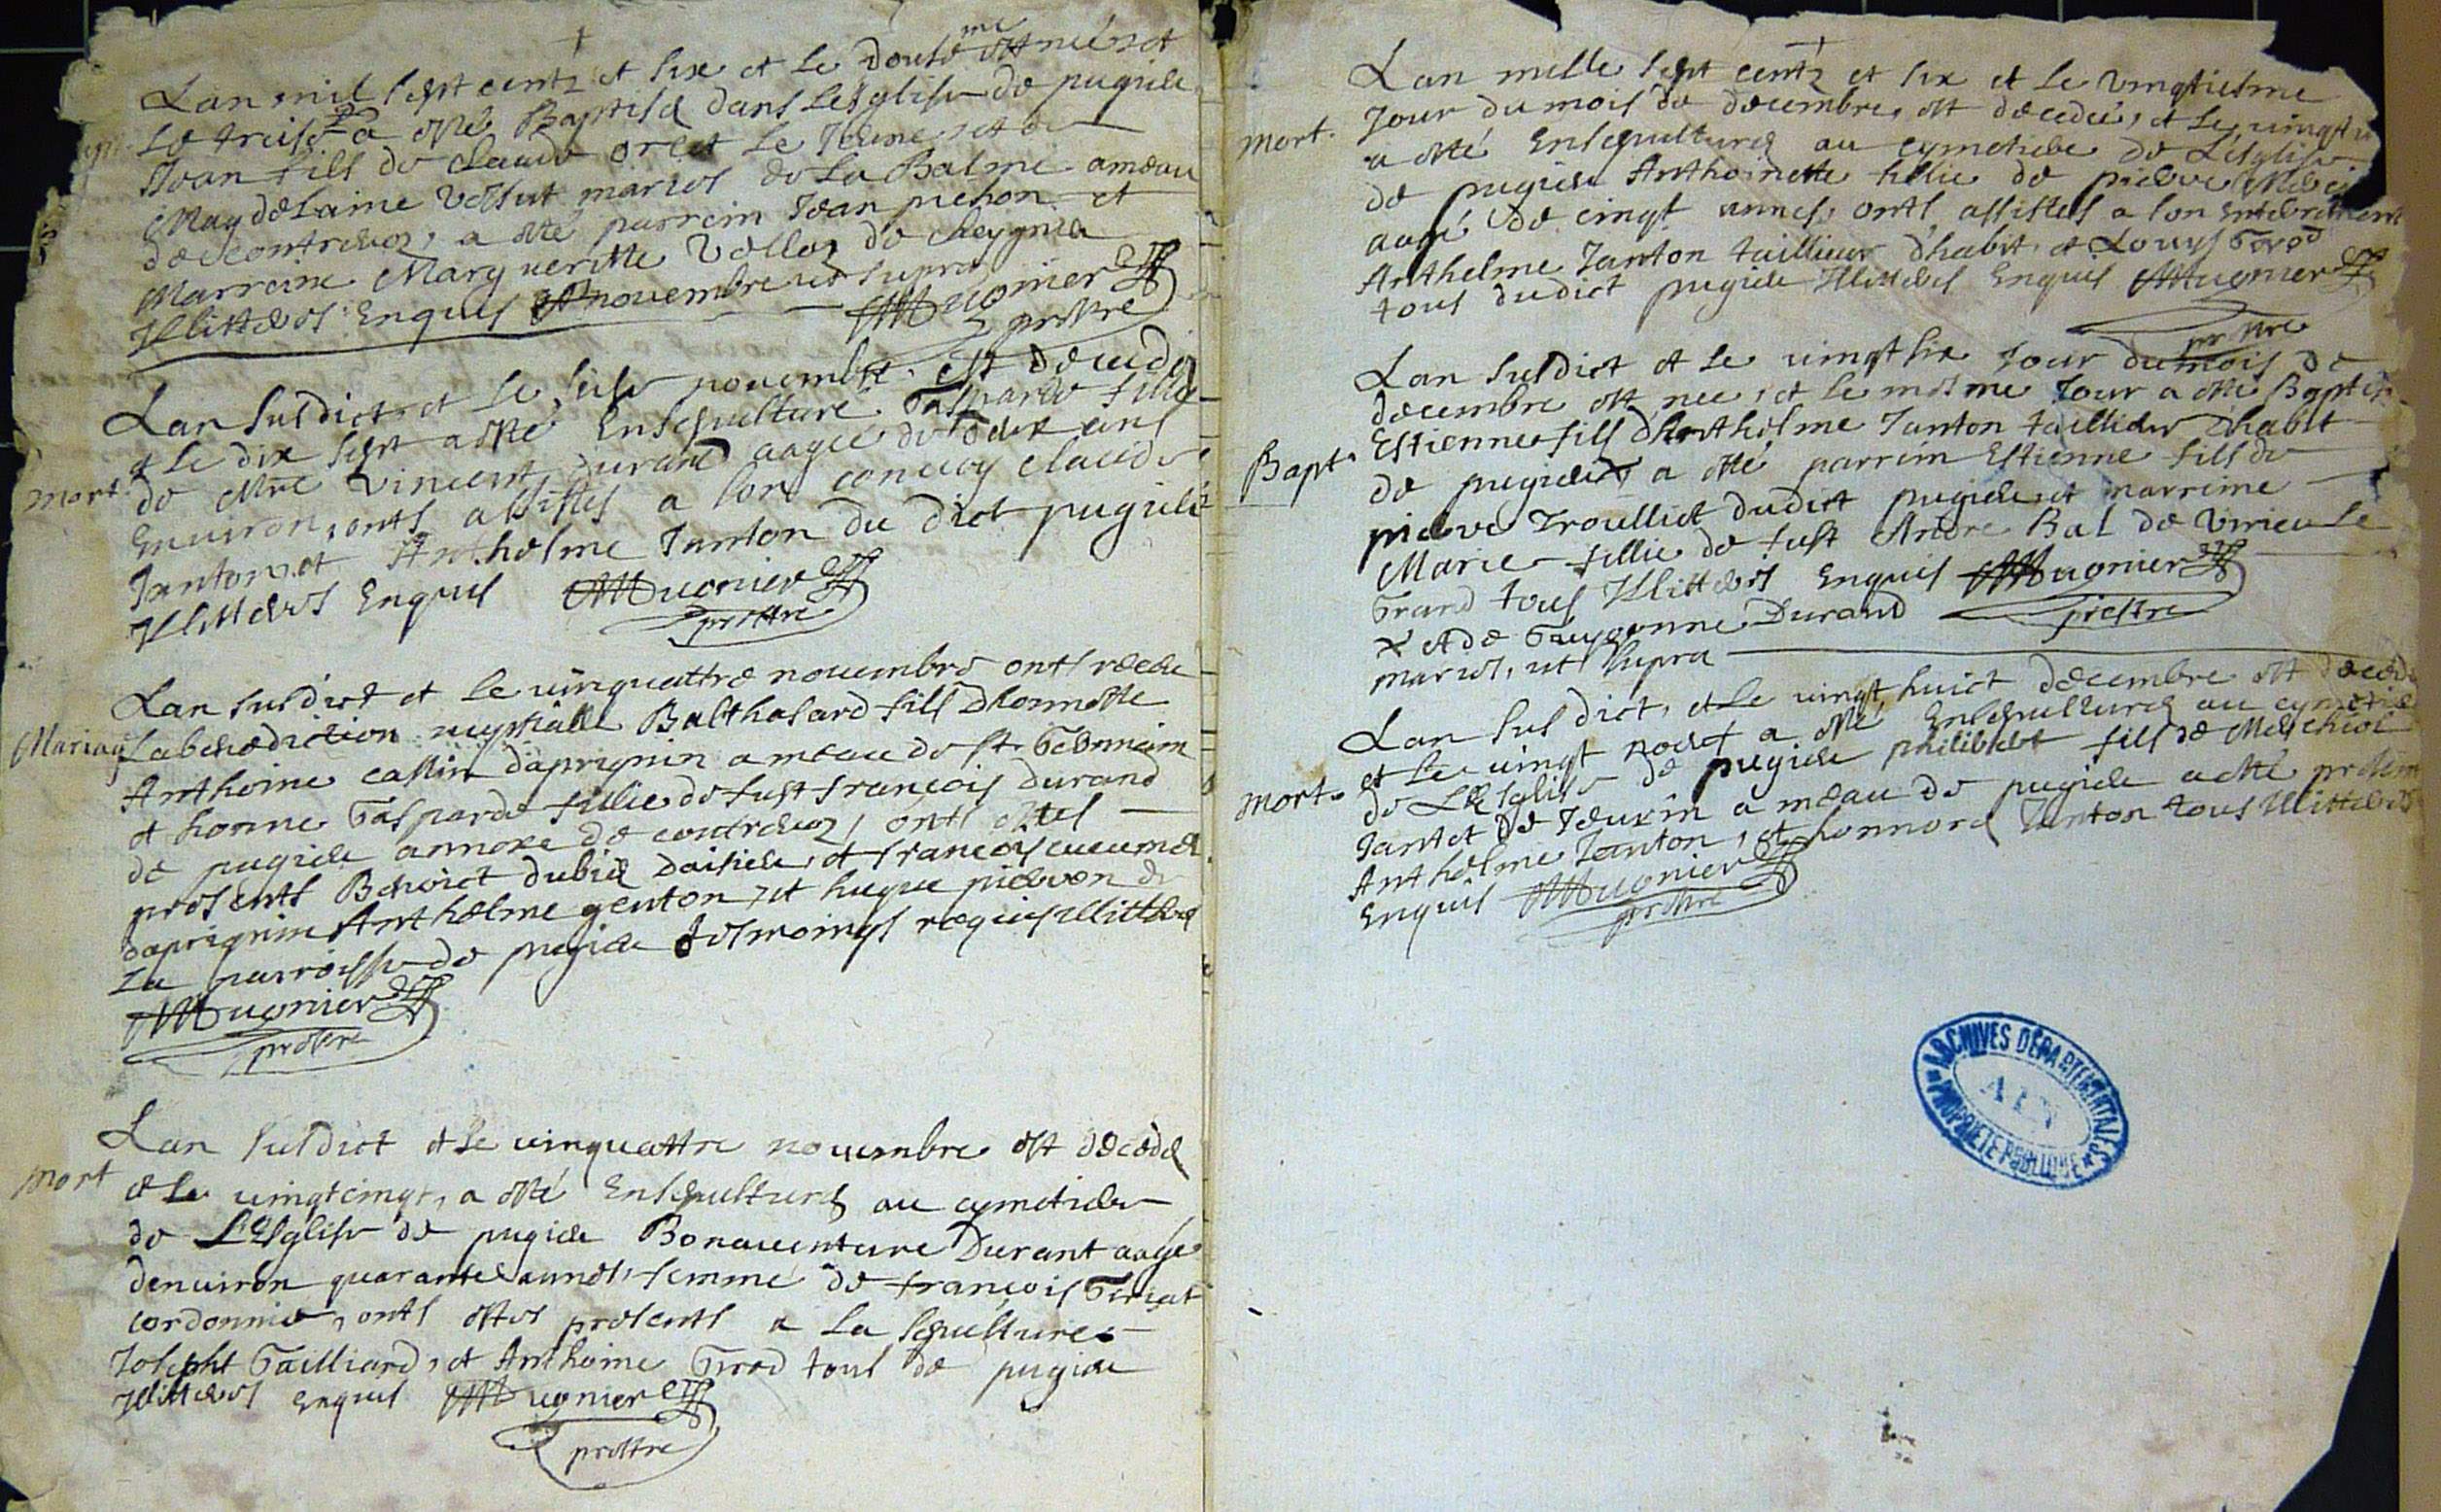 Lan mil sept centz et six et le douse me est née et
le treise a esté Baptisé dans leglise de pugieu
Jean fils de claude orset le Jeune et de
Magdelaine Vessut mariés de La Balme ameau
de contrevoz, a esté parrein Jean pichon et
Marreine Margueritte Velloz de cheygnieu
Illitterés Enquis novembre ut supra Mugnier
prestre
mort.
Lan susdict et le seise novembre est decedé
et le dix sept a esté Ensepulturé Gasparde fillie
de Mre Vincent Durand aagée de deux ans
Environ, onts assistés a son convoy claude
Janton et Anthelme Janton du dict pugieu
Illitterés Enquis Mugnier
prestre
Mariag
Lan susdict et le vinquattre novembre onts receu
La benediction nuptialle Balthasard fils Dhonneste
Anthoine cassin daprignin ameau de st. Germain
et honne Gasparde fillie de fust françois Durand
de pugieu annexe de contrevoz, onts estés
presents Benoict dubié Daisieu, et françois cucumel
daprignin Anthelme genton, et hugue piévon de
La parroisse de pugieu tesmoings requis Illitterés
Mugnier
prestre
mort
Lan susdict et le vinquattre novembre est decedé
et le vingtcinq, a esté Ensepulturé au cymetiere
de L'Esglise de pugieu Bonaventure Durant aagé
denviron quarante annes, femme de françois Giriat
cordonnié, onts estés presents a la sepulture
Joseph Gailliard, et Anthoine Grod tous de pugieu
Illitterés Enquis Mugnier
prestre
mort.
Lan mille sept centz et six et le vingtiesme
Jour du mois de decembre, est decedée, et le vingt u
a esté Ensepulturé au cymetiere de L'Esglise
de pugieu Anthoinette fillie de pierre
aagé de cinqt annes, onts assistés a son Enterrement
Anthelme Janton taillieur d'habit, et Louys Grod
tous dudict pugieu Illitterés Enquis Mugnier
prestre
Bapt.
Lan susdict et le vingt six Jour du mois de
decembre est nee, et le mesme Jour a esté Baptisé
Estienne fils d'Anthelme Janton taillieur Dhabit
de pugieu x a esté parrein Estienne fils de
pierre Troulliet dudict pugieu, et marreine
Marie fillie de fust Andre Bal de Virieu Le
Grand tous Illitterés Enquis Mugnier
x et de Guygonne Durand prestre
mariés, ut supra
mort.
Lan susdict, et le vingt huict decembre est decedé
et le vingt noeuf a esté Ensepulturé au cymetie
de L'Esglise de pugieu philibert fils de Melchiol
Jantet de Jeuxin ameau de pugieu a esté presents
Anthelme Janton, et honnoré Janton tous Illitterés
Enquis Mugnier
prestre
ARCHIVES DÉPARTEMENTALES
AIN
PROPRIÉTÉ PUBLIQUE